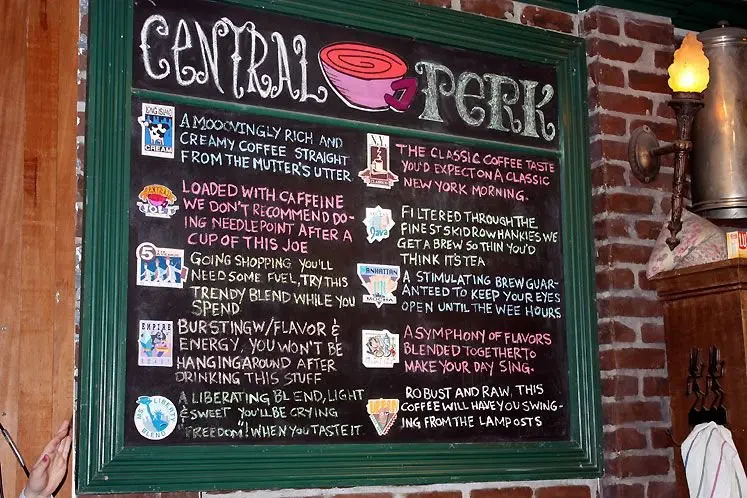 CENTRAL PERK
ENGLISH
CREAM
A MOOOVINGLY RICH AND
CREAMY COFFEE STRAIGHT
FROM THE MUTTER'S UTTER
LOADED WITH CAFFEINE
WE DON'T RECOMMEND DO-
ING NEEDLEPOINT AFTER A
CUP OF THIS JOE
5
GOING SHOPPING YOU'LL
NEED SOME FUEL, TRY THIS
TRENDY BLEND WHILE YOU
SPEND
EMPIRE
ROAST
BURSTING W/FLAVOR &
ENERGY, YOU WON'T BE
HANGING AROUND AFTER
DRINKING THIS STUFF
LIBERTY
BLEND
A LIBERATING BLEND, LIGHT
& SWEET YOU'LL BE CRYING
"FREEDOM"! WHEN YOU TASTE IT
THE CLASSIC COFFEE TASTE
YOU'D EXPECT ON A CLASSIC
NEW YORK MORNING.
Java
FILTERED THROUGH THE
FINEST SKIDROW HANKIES WE
GET A BREW SO THIN YOU'D
THINK ITS TEA
MANHATTAN
MOCHA
A STIMULATING BREW GUAR-
ANTEED TO KEEP YOUR EYES
OPEN UNTIL THE WEE HOURS
A SYMPHONY OF FLAVORS
BLENDED TOGETHER TO
MAKE YOUR DAY SING.
ROBUST AND RAW, THIS
COFFEE WILL HAVE YOU SWING-
ING FROM THE LAMPOSTS